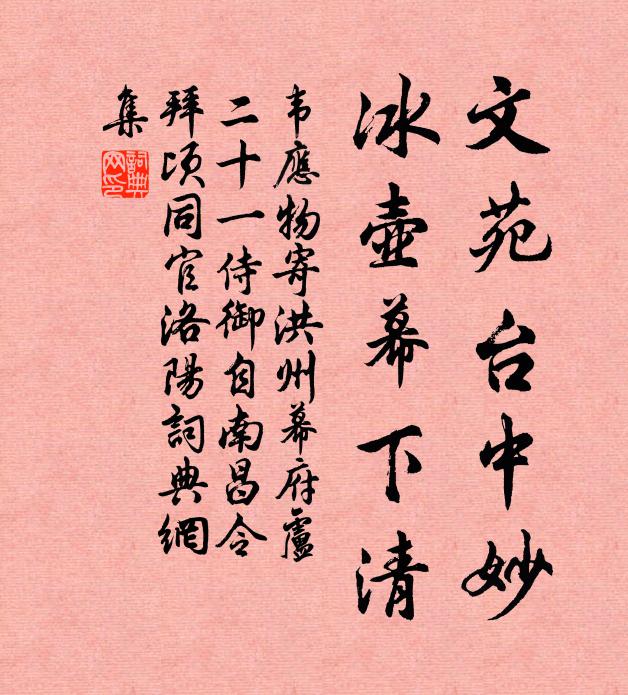 文苑台中妙
冰壶幕下清
韦應物寄洪州幕府盧
二十一侍御自南昌令
拜頃同官洛陽詞典網
集
詞典
网印